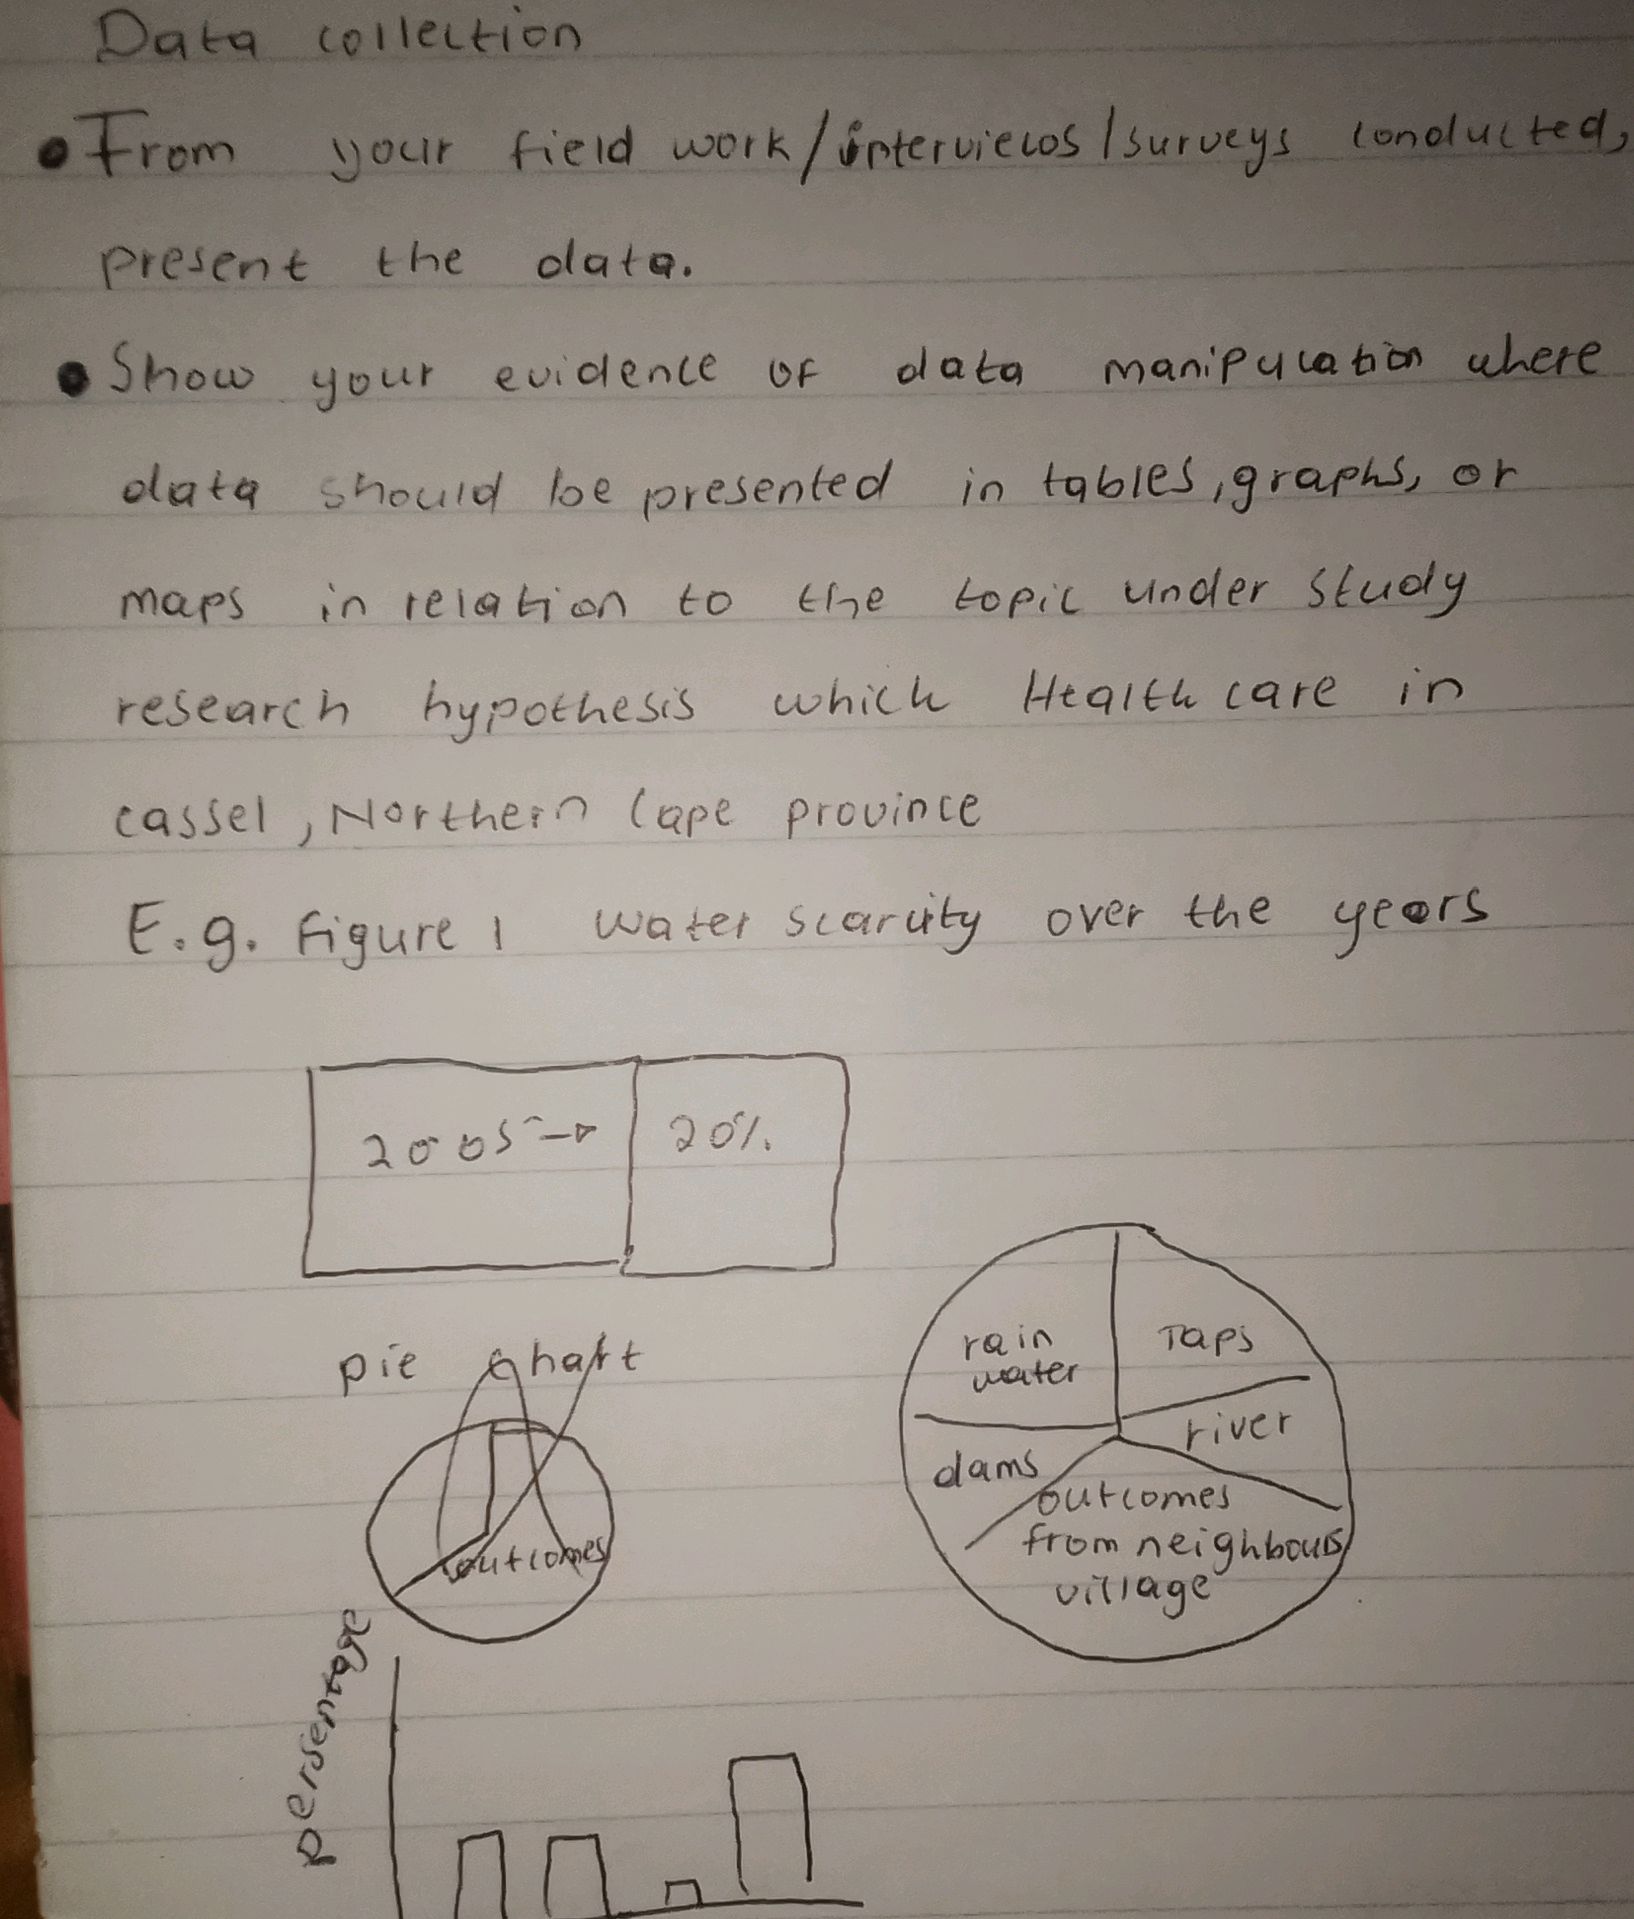 Data collection
• From your field work/interviews/surveys conducted,
present the data.
• Show your evidence of data manipulation where
data should be presented in tables, graphs, or
maps in relation to the topic under study
research hypothesis which Health care in
cassel, Northern Cape province
E.g. Figure 1 water scarcity over the years
2005 → 20%
pie chart
outcomes
rain
water
Taps
river
dams
outcomes
from neighbours
village
persentage